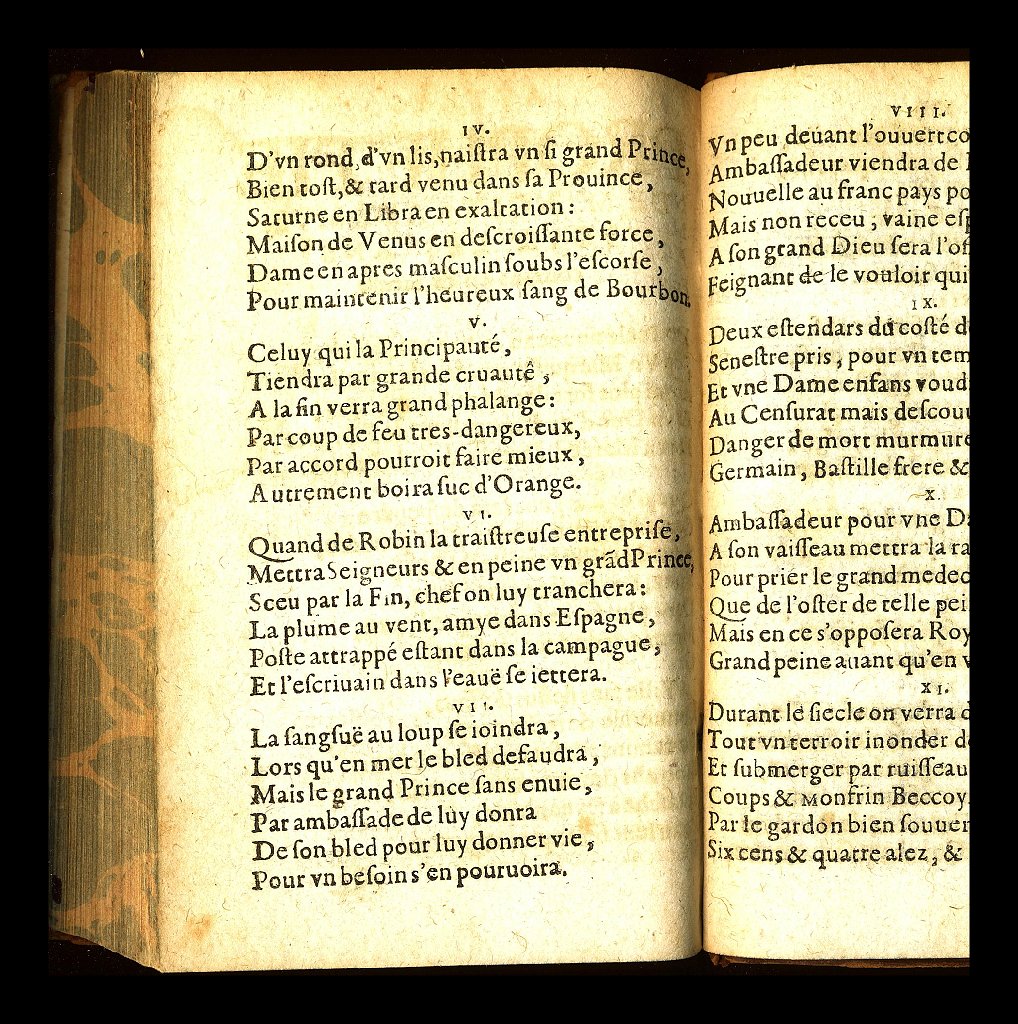 IV.
D'vn rond, d'vn lis, naiſtra vn ſi grand Prince,
Bien toſt, & tard venu dans ſa Prouince,
Saturne en Libra en exaltation:
Maiſon de Venus en deſcroiſſante force,
Dame en apres maſculin ſoubs l'eſcorſe,
Pour maintenir l'heureux ſang de Bourbon.
V.
Celuy qui la Principauté,
Tiendra par grande cruauté,
A la fin verra grand phalange:
Par coup de feu tres-dangereux,
Par accord pourroit faire mieux,
Autrement boira ſuc d'Orange.
VI.
Quand de Robin la traiſtreuſe entrepriſe,
Mettra Seigneurs & en peine vn grãd Prince,
Sceu par la Fin, chef on luy tranchera:
La plume au vent, amye dans Eſpagne,
Poſte attrappé eſtant dans la campague,
Et l'eſcriuain dans l'eauë ſe iettera.
VII.
La ſangſuë au loup ſe ioindra,
Lors qu'en mer le bled defaudra,
Mais le grand Prince ſans enuie,
Par ambaſſade de luy donra
De ſon bled pour luy donner vie,
Pour vn beſoin s'en pouruoira.
VIII.
Vn peu deuant l'ouuert co
Ambaſſadeur viendra de
Nouuelle au franc pays po
Mais non receu; vaine eſp
A ſon grand Dieu ſera l'of
Feignant de le vouloir qui
IX.
Deux eſtendars du coſté d
Seneſtre pris, pour vn tem
Et vne Dame enfans voud
Au Cenſurat mais deſcou
Danger de mort murmure
Germain, Baſtille frere &
X.
Ambaſſadeur pour vne Da
A ſon vaiſſeau mettra la ra
Pour prier le grand medec
Que de l'oſter de telle pei
Mais en ce s'oppoſera Roy
Grand peine auant qu'en v
XI.
Durant le ſiecle on verra d
Tout vn terroir inonder d
Et ſubmerger par ruiſſeau
Coups & Monfrin Beccoy
Par le gardon bien ſouuer
Six cens & quatre alez, &